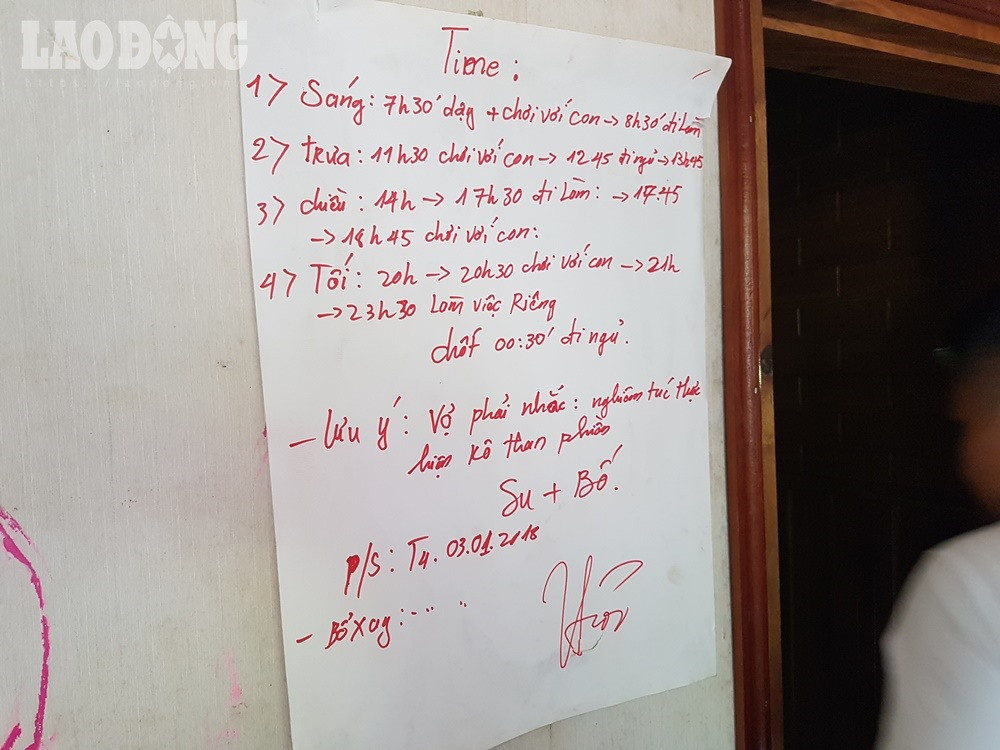 LAO ĐỘNG
Time:
1> Sáng: 7h30' dạy + chơi với con → 8h30' đi làm
2> trưa: 11h30 chơi với con → 12 45 đi ngủ → 13h45
3> chiều: 14h → 17h30 đi làm: → 17.45
→ 18h45 chơi với con:
4> Tối: 20h → 20h30 chơi với con → 21h
→ 23h30 làm việc Riêng
chốt 00:30' đi ngủ.
- Lưu ý: Vợ phải nhắc: nghiêm túc thực
hiện kô than phiền
Su + Bố.
P/S: T4. 03.01.2018
- Bổ xog: